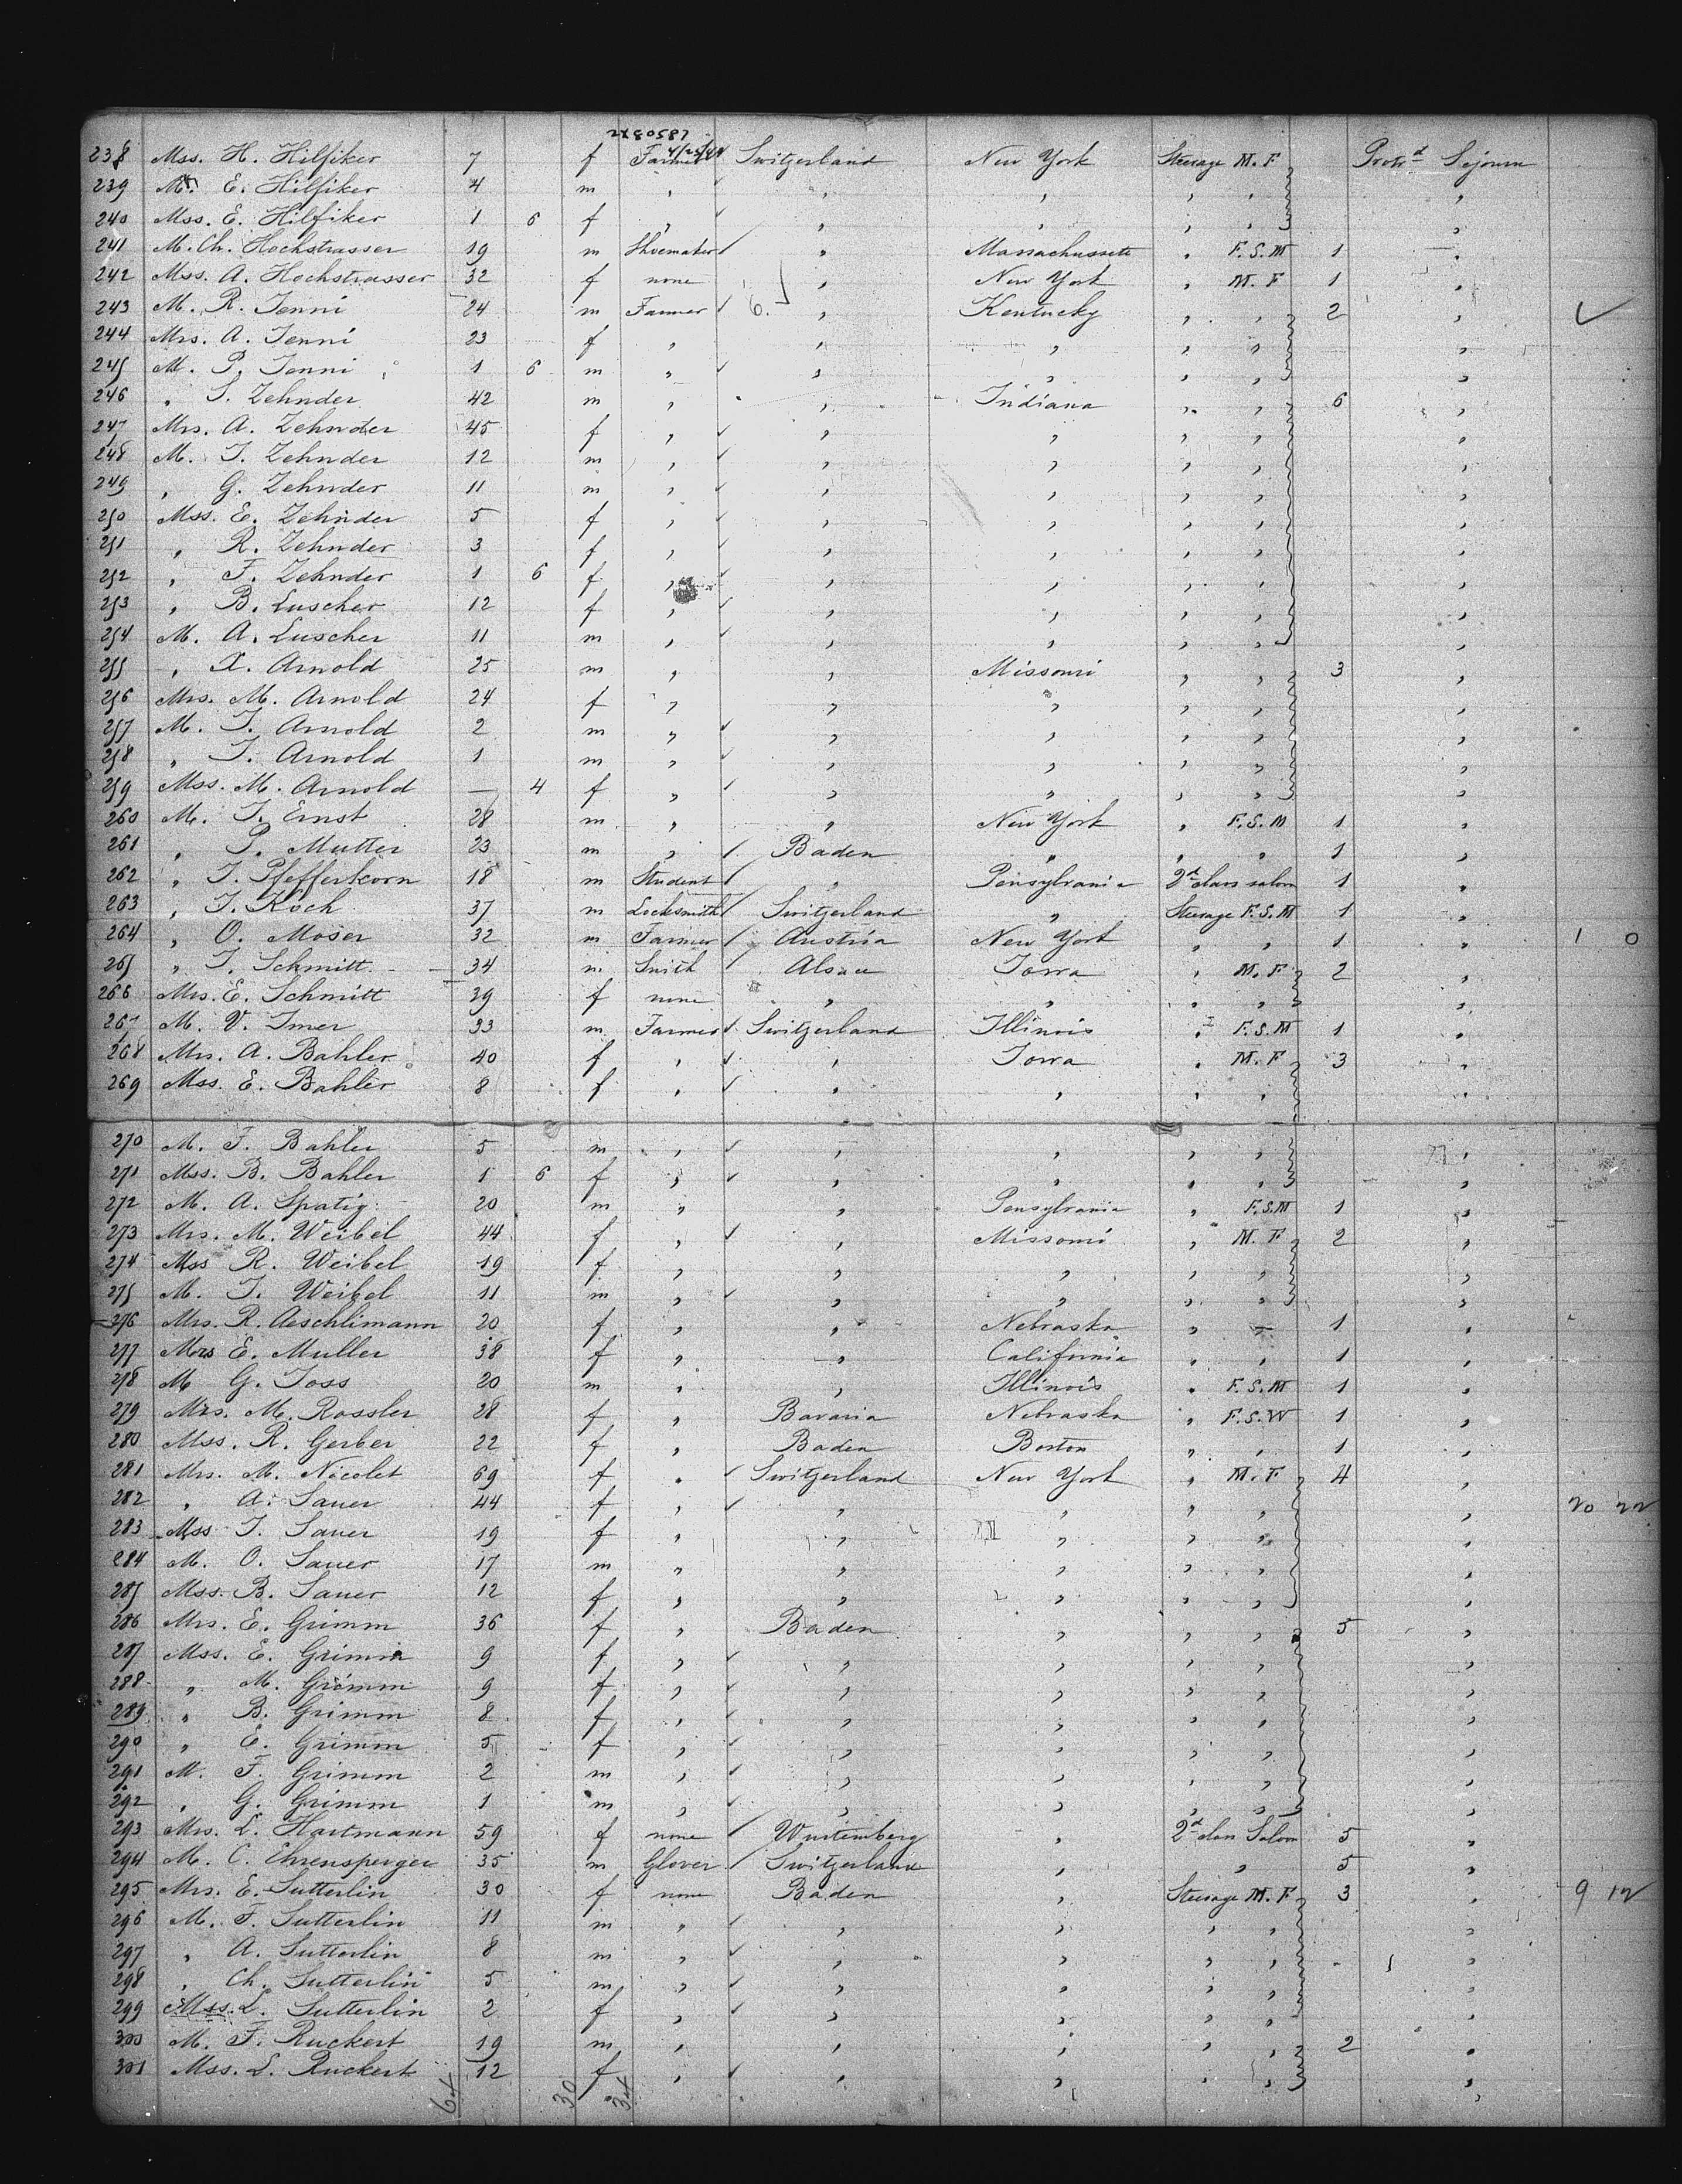 2X80587
4/25/44
238 Mss. H. Hilfiker 7 f Farmer Switzerland New York Steerage M.F Protr^d Sejourn
239 M. E. Hilfiker 4 m " " " " " "
240 Mss. E. Hilfiker 1 6 f " " " " " "
241 M. Ch. Hochstrasser 19 m Shoemaker " Massachussets " F.S.M 1 "
242 Mss. A. Hochstrasser 32 f none " New York " M.F 1 "
243 M. R. Jenni 24 m Farmer 6. " Kentucky " " 2 "
244 Mrs. A. Jenni 23 f " " " " " "
245 M. P. Jenni 1 6 m " " " " " "
246 " S. Zehnder 42 m " " Indiana " " 6 "
247 Mrs. A. Zehnder 45 f " " " " " "
248 M. J. Zehnder 12 m " " " " " "
249 " G. Zehnder 11 m " " " " " "
250 Mss. E. Zehnder 5 f " " " " " "
251 " R. Zehnder 3 f " " " " " "
252 " F. Zehnder 1 6 f " " " " " "
253 " B. Luscher 12 f " " " " " "
254 M. A. Luscher 11 m " " " " " "
255 " X. Arnold 25 m " " Missouri " " 3 "
256 Mrs. M. Arnold 24 f " " " " " "
257 M. J. Arnold 2 m " " " " " "
258 " J. Arnold 1 m " " " " " "
259 Mss. M. Arnold — 4 f " " " " " "
260 M. J. Ernst 28 m " " New York " F.S.M 1 "
261 " P. Mutter 23 m " Baden " " " 1 "
262 " J. Pfefferkorn 18 m Student " Pensylvania 2^d class salon 1 "
263 " J. Koch 37 m Locksmith Switzerland " Steerage F.S.M 1 "
264 " O. Moser 32 m Farmer Austria New York " " 1 " 1 0
265 " J. Schmitt 34 m Smith Alsace Iowa " M.F 2 "
266 Mrs. E. Schmitt 39 f none " " " " "
267 M. V. Imer 33 m Farmer Switzerland Illinois " F.S.M 1 "
268 Mrs. A. Bahler 40 f " " Iowa " M.F 3 "
269 Mss. E. Bahler 8 f " " " " " "
270 M. F. Bahler 5 m " " " " " "
271 Mss. B. Bahler 1 6 f " " " " " "
272 M. A. Spatig 20 m " " Pensylvania " F.S.M 1 "
273 Mrs. M. Weibel 44 f " " Missouri " M.F 2 "
274 Mss R. Weibel 19 f " " " " " "
275 M. J. Weibel 11 m " " " " " "
276 Mrs. R. Aeschlimann 20 f " " Nebraska " " 1 "
277 Mrs E. Muller 38 f " " California " " 1 "
278 M G. Joss 20 m " " Illinois " F.S.M 1 "
279 Mrs. M. Rossler 28 f " Bavaria Nebraska " F.S.W 1 "
280 Mss. R. Gerber 22 f " Baden Boston " " 1 "
281 Mrs. M. Nicolet 69 f " Switzerland New York " M.F 4 "
282 " A. Sauer 44 f " " " " " " 20 22
283 Mss J. Sauer 19 f " " " " " "
284 M. O. Sauer 17 m " " " " " "
285 Mss. B. Sauer 12 f " " " " " "
286 Mrs. E. Grimm 36 f " Baden " " " 5 "
287 Mss. E. Grimm 9 f " " " " " "
288 " M. Grimm 9 f " " " " " "
289 " B. Grimm 8 f " " " " " "
290 " E. Grimm 5 f " " " " " "
291 M. F. Grimm 2 m " " " " " "
292 " G. Grimm 1 m " " " " " "
293 Mrs. L. Hartmann 59 f none Wurtemberg " 2^d class Salon 5 "
294 M. C. Ehrensperger 35 m Glover Switzerland " " 5 "
295 Mrs. E. Sutterlin 30 f none Baden " Steerage M.F 3 " 9 12
296 M. F. Sutterlin 11 m " " " " " "
297 " A. Sutterlin 8 m " " " " " "
298 " Ch. Sutterlin 5 m " " " " " "
299 Mss. L. Sutterlin 2 f " " " " " "
300 M. F. Ruckert 19 m " " " " " 2 "
301 Mss. L. Ruckert 12 f " " " " " "
64 30 34